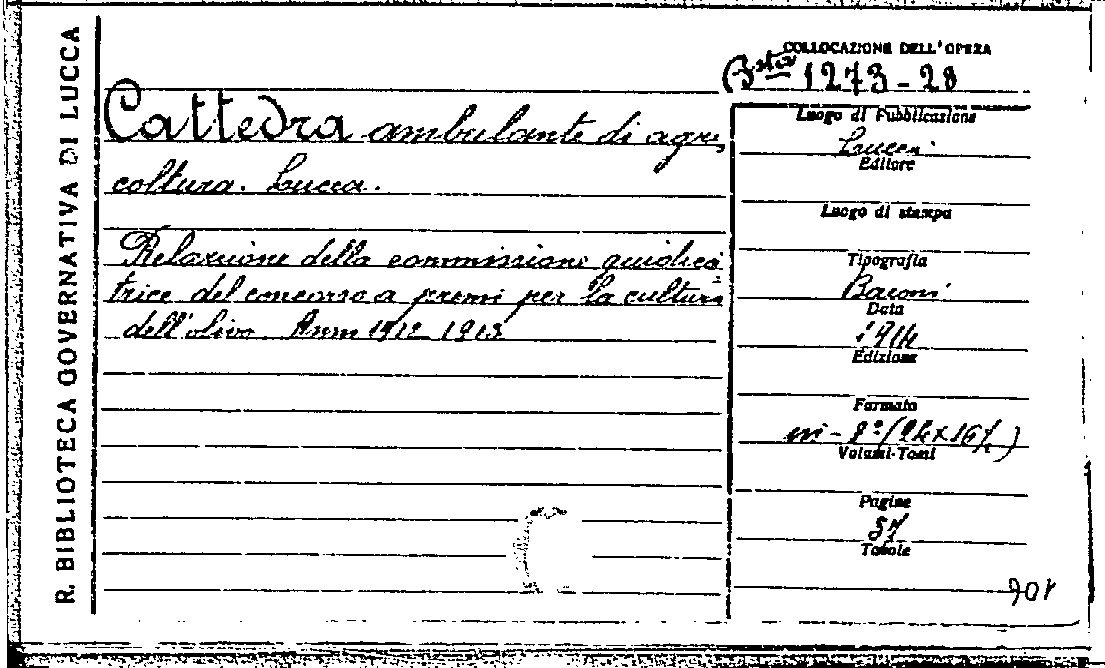 R. BIBLIOTECA GOVERNATIVA DI LUCCA
COLLOCAZIONE DELL'OPERA
Bsta 1273-28
Cattedra ambulante di agri
coltura. Lucca.
Relazione della commissione giudica
trice del concorso a premi per la cultura
dell'olivo. Anni 1912-1913
Luogo di Pubblicazione
Lucca
Editore
Luogo di stampa
Tipografia
Baroni
Data
1914
Edizione
Formato
in-8º (24x16½)
Volumi-Tomi
Pagine
37
Tavole